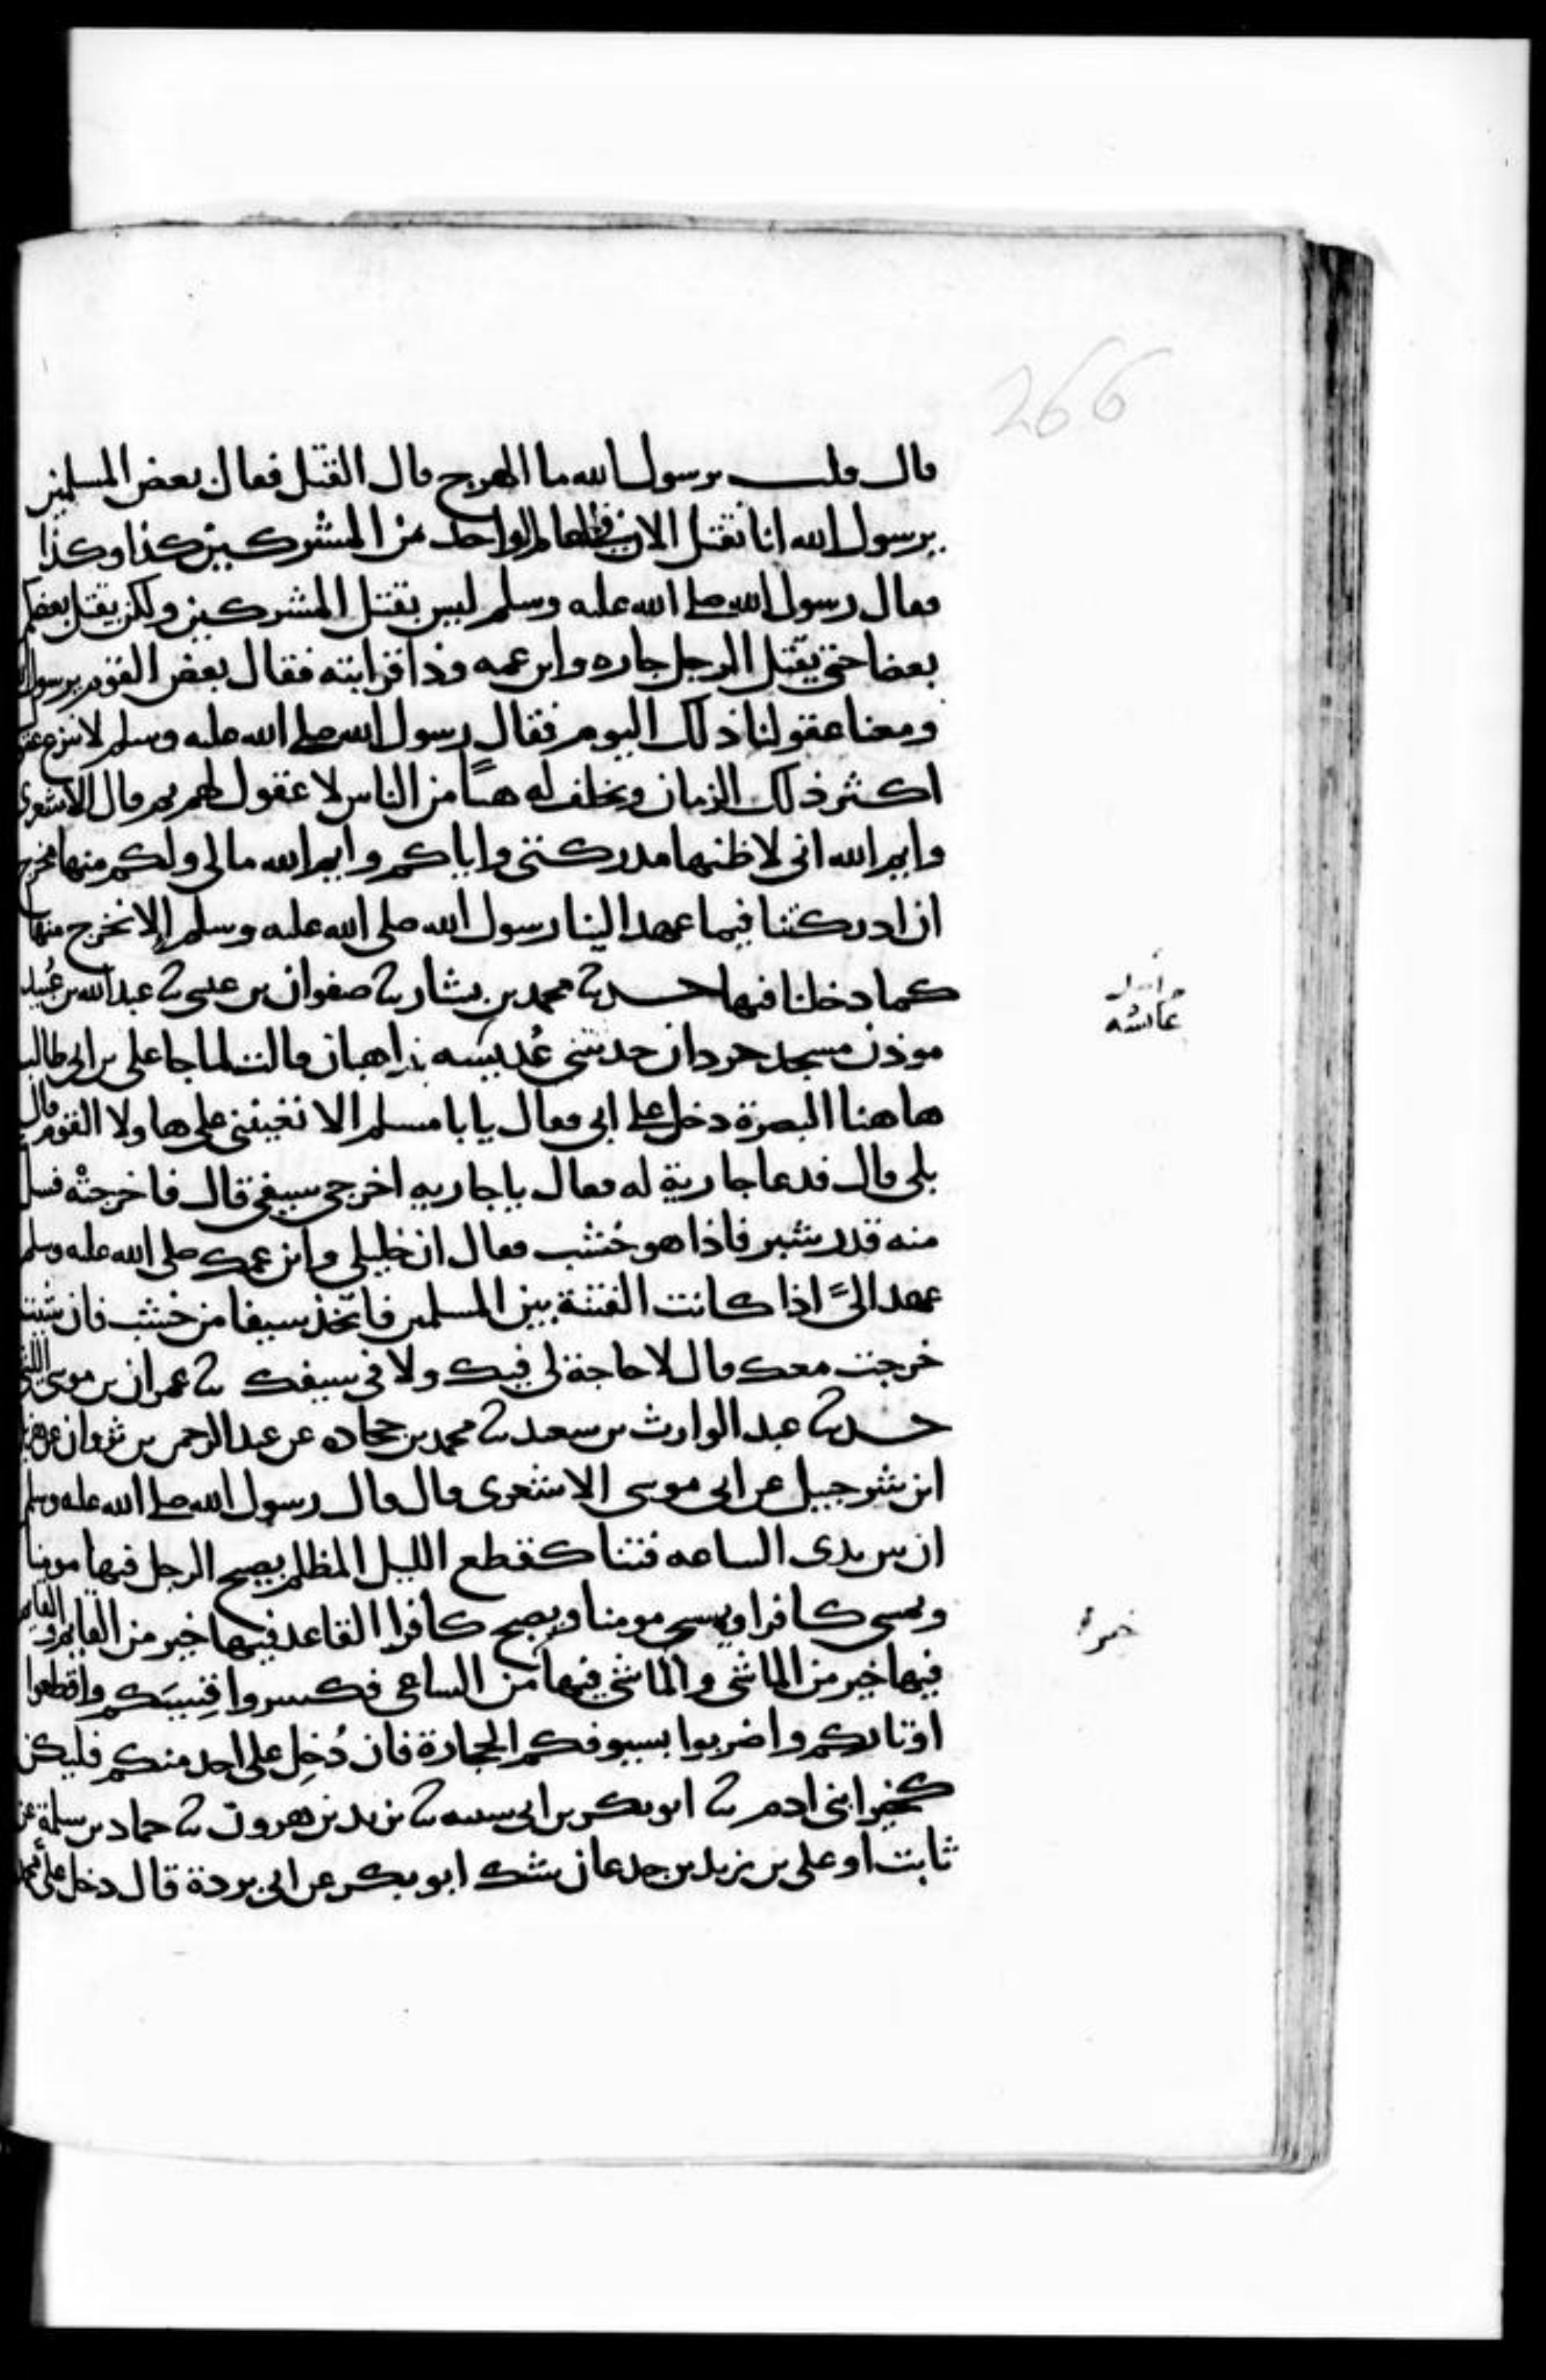 266
قال قلت يرسول الله ما الهرج قال القتل فقال بعض المسلمين
يرسول الله انا نقتل الان في العام الواحد من المشركين كذا وكذا
فقال رسول الله صلى الله عليه وسلم ليس بقتل المشركين ولكن يقتل بعضكم
بعضا حتى يقتل الرجل جاره وابن عمه وذا قرابته فقال بعض القوم يرسول
ومعنا عقولنا ذلك اليوم فقال رسول الله صلى الله عليه وسلم لا تنزع
اكثر ذلك الزمان ويخلف له هبا من الناس لا عقول لهم ثم قال الاشعري
وايم الله اني لاظنها مدركتني واياكم وايم الله مالي ولكم منها مخرج
ان ادركتنا فيما عهد الينا رسول الله صلى الله عليه وسلم إلا نخرج منها
كما دخلنا فيها حدثنا محمد بن بشار ثنا صفوان بن عيسى ثنا عبد الله بن عُبيد
موذن مسجد جردان حدثتني عُديسَه بنت اهبان قالت لما جا علي بن ابي طالب
هاهنا البصرة دخل على ابي فقال يا با مسلم الا تعينني على هاولا القوم قال
بلى قال فدعا جارية له فقال يا جاريه اخرجي سيفي قال فاخرجتْه فسل
منه قدر شبر فاذا هو خُشب فقال ان خليلي وابن عمك صلى الله عليه وسلم
عهد اليَّ اذا كانت الفتنة بين المسلمين فاتخذ سيفا من خشب فان شيت
خرجت معك قال لا حاجة لي فيك ولا في سيفك ثنا عمران بن موسى الليثي
حدثنا عبد الوارث بن سعيد ثنا محمد بن جحاده عن عبد الرحمن بن ثروان عن هزيل
ابن شرحبيل عن ابي موسى الاشعري قال قال رسول الله صلى الله عليه وسلم
ان بين يدي الساعه فتنا كقطع الليل المظلم يصبح الرجل فيها مومنا
ويمسي كافرا ويمسي مومنا ويصبح كافرا القاعد فيها خير من القايم والقايم
فيها خير من الماشي والماشي فيها من الساعي فكسروا قِسِيكم واقطعوا
اوتاركم واضربوا بسيوفكم الحجارة فان دُخِل على احد منكم فليكن
كخير ابني ادم ثنا ابو بكر بن ابي شيبه ثنا يزيد بن هرون ثنا حماد بن سلمة عن
ثابت او علي بن زيد بن جدعان شك ابو بكر عن ابي بردة قال دخل على
عائشه
خيرٌ